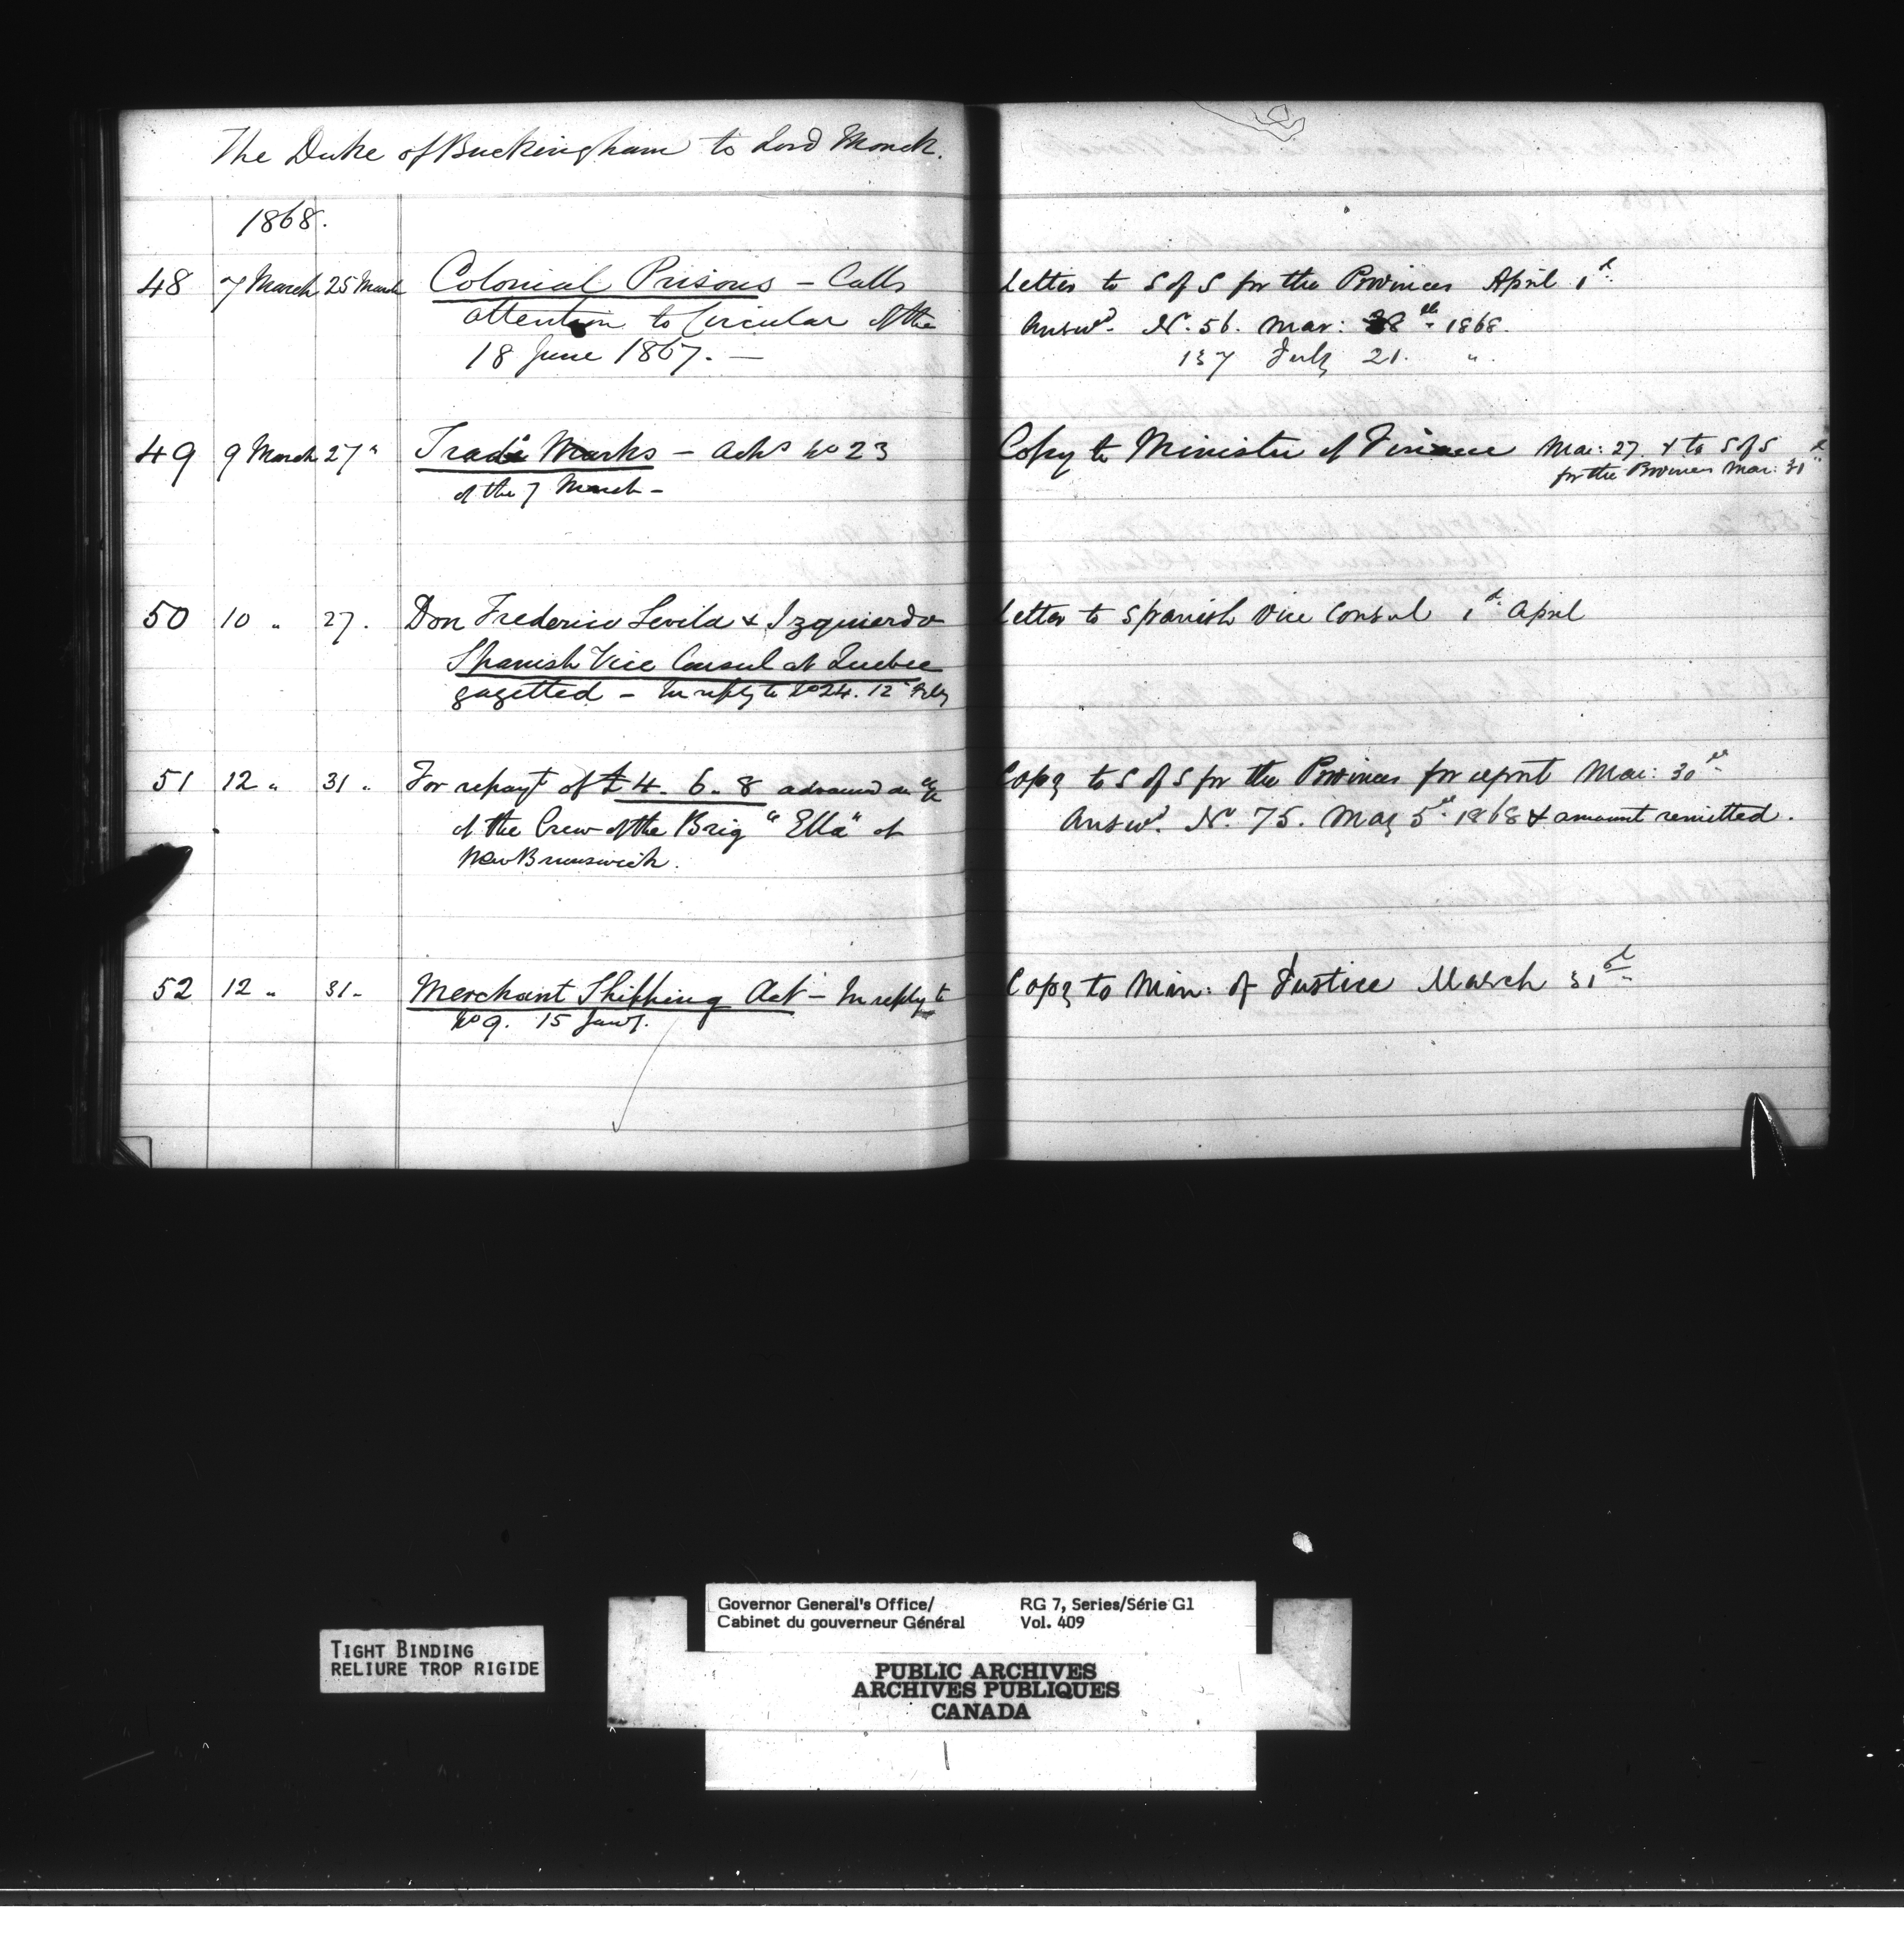 The Duke of Buckingham to Lord Monck.
1868.
48 7 March 25 March Colonial Prisons – Calls
attention to Circular of the
18 June 1867. –
Letter to S of S for the Provinces April 1st
Answd. No. 56. Mar: 28th 1868.
137 July 21. "
49 9 March 27 " Trade Marks – Acks No 23
of the 7 March –
Copy to Minister of Finance Mar: 27. & to S of S
for the Provinces Mar: 31st
50 10 " 27. Don Frederico Sevila & Izquierdo
Spanish Vice Consul at Quebec
gazetted – In reply to No 24. 12 Feby
Letter to Spanish Vice Consul 1st April
51 12 " 31 " For repayt of £4. 6. 8 advanced on a/c
of the Crew of the Brig "Ella" of
New Brunswick.
Copy to S of S for the Provinces for report Mar: 30th
Answd. No. 75. May 5th 1868 & amount remitted.
52 12 " 31 " Merchant Shipping Act – In reply to
No 9. 15 Jany.
Copy to Min: of Justice March 31st
TIGHT BINDING
RELIURE TROP RIGIDE
Governor General's Office/ RG 7, Series/Série G1
Cabinet du gouverneur Général Vol. 409
PUBLIC ARCHIVES
ARCHIVES PUBLIQUES
CANADA